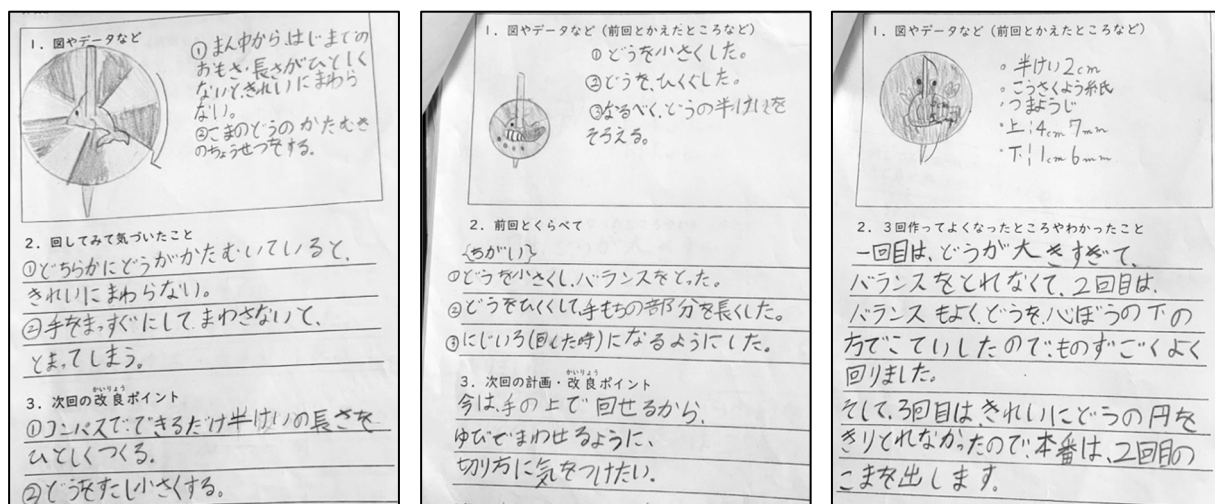 1. 図やデータなど
①まん中から、はじまでの
おもさ・長さがひとしく
ないと、きれいにまわら
ない。
②こまのどうのかたむき
のちょうせつをする。
2. 回してみて気づいたこと
①どちらかにどうがかたむいていると、
きれいにまわらない。
②手をまっすぐにして、まわさないと、
とまってしまう。
3. 次回の改良ポイント
かいりょう
①コンパスで、できるだけ半けいの長さを
ひとしくつくる。
②どうをすこし小さくする。
1. 図やデータなど (前回とかえたところなど)
①どうを小さくした。
②どうを、ひくくした。
③なるべく、どうの半けいを
そろえる。
2. 前回とくらべて
{ちがい}
①どうを小さくし、バランスをとった。
②どうをひくくして、手もちの部分を長くした。
③にじいろ(回した時)になるようにした。
3. 次回の計画・改良ポイント
かいりょう
今は、手の上で回せるから、
ゆびでまわせるように、
切り方に気をつけたい。
1. 図やデータなど (前回とかえたところなど)
。半けい2cm
。こうさくよう紙
・つまようじ
・上:4cm7mm
・下:1cm6mm
2. 3回作ってよくなったところやわかったこと
一回目は、どうが大きすぎて、
バランスをとれなくて、2回目は、
バランスもよく、どうを、心ぼうの下の
方でこていしたので、ものすごくよく
回りました。
そして、3回目は、きれいにどうの円を
きりとれなかったので、本番は、2回目の
こまを出します。